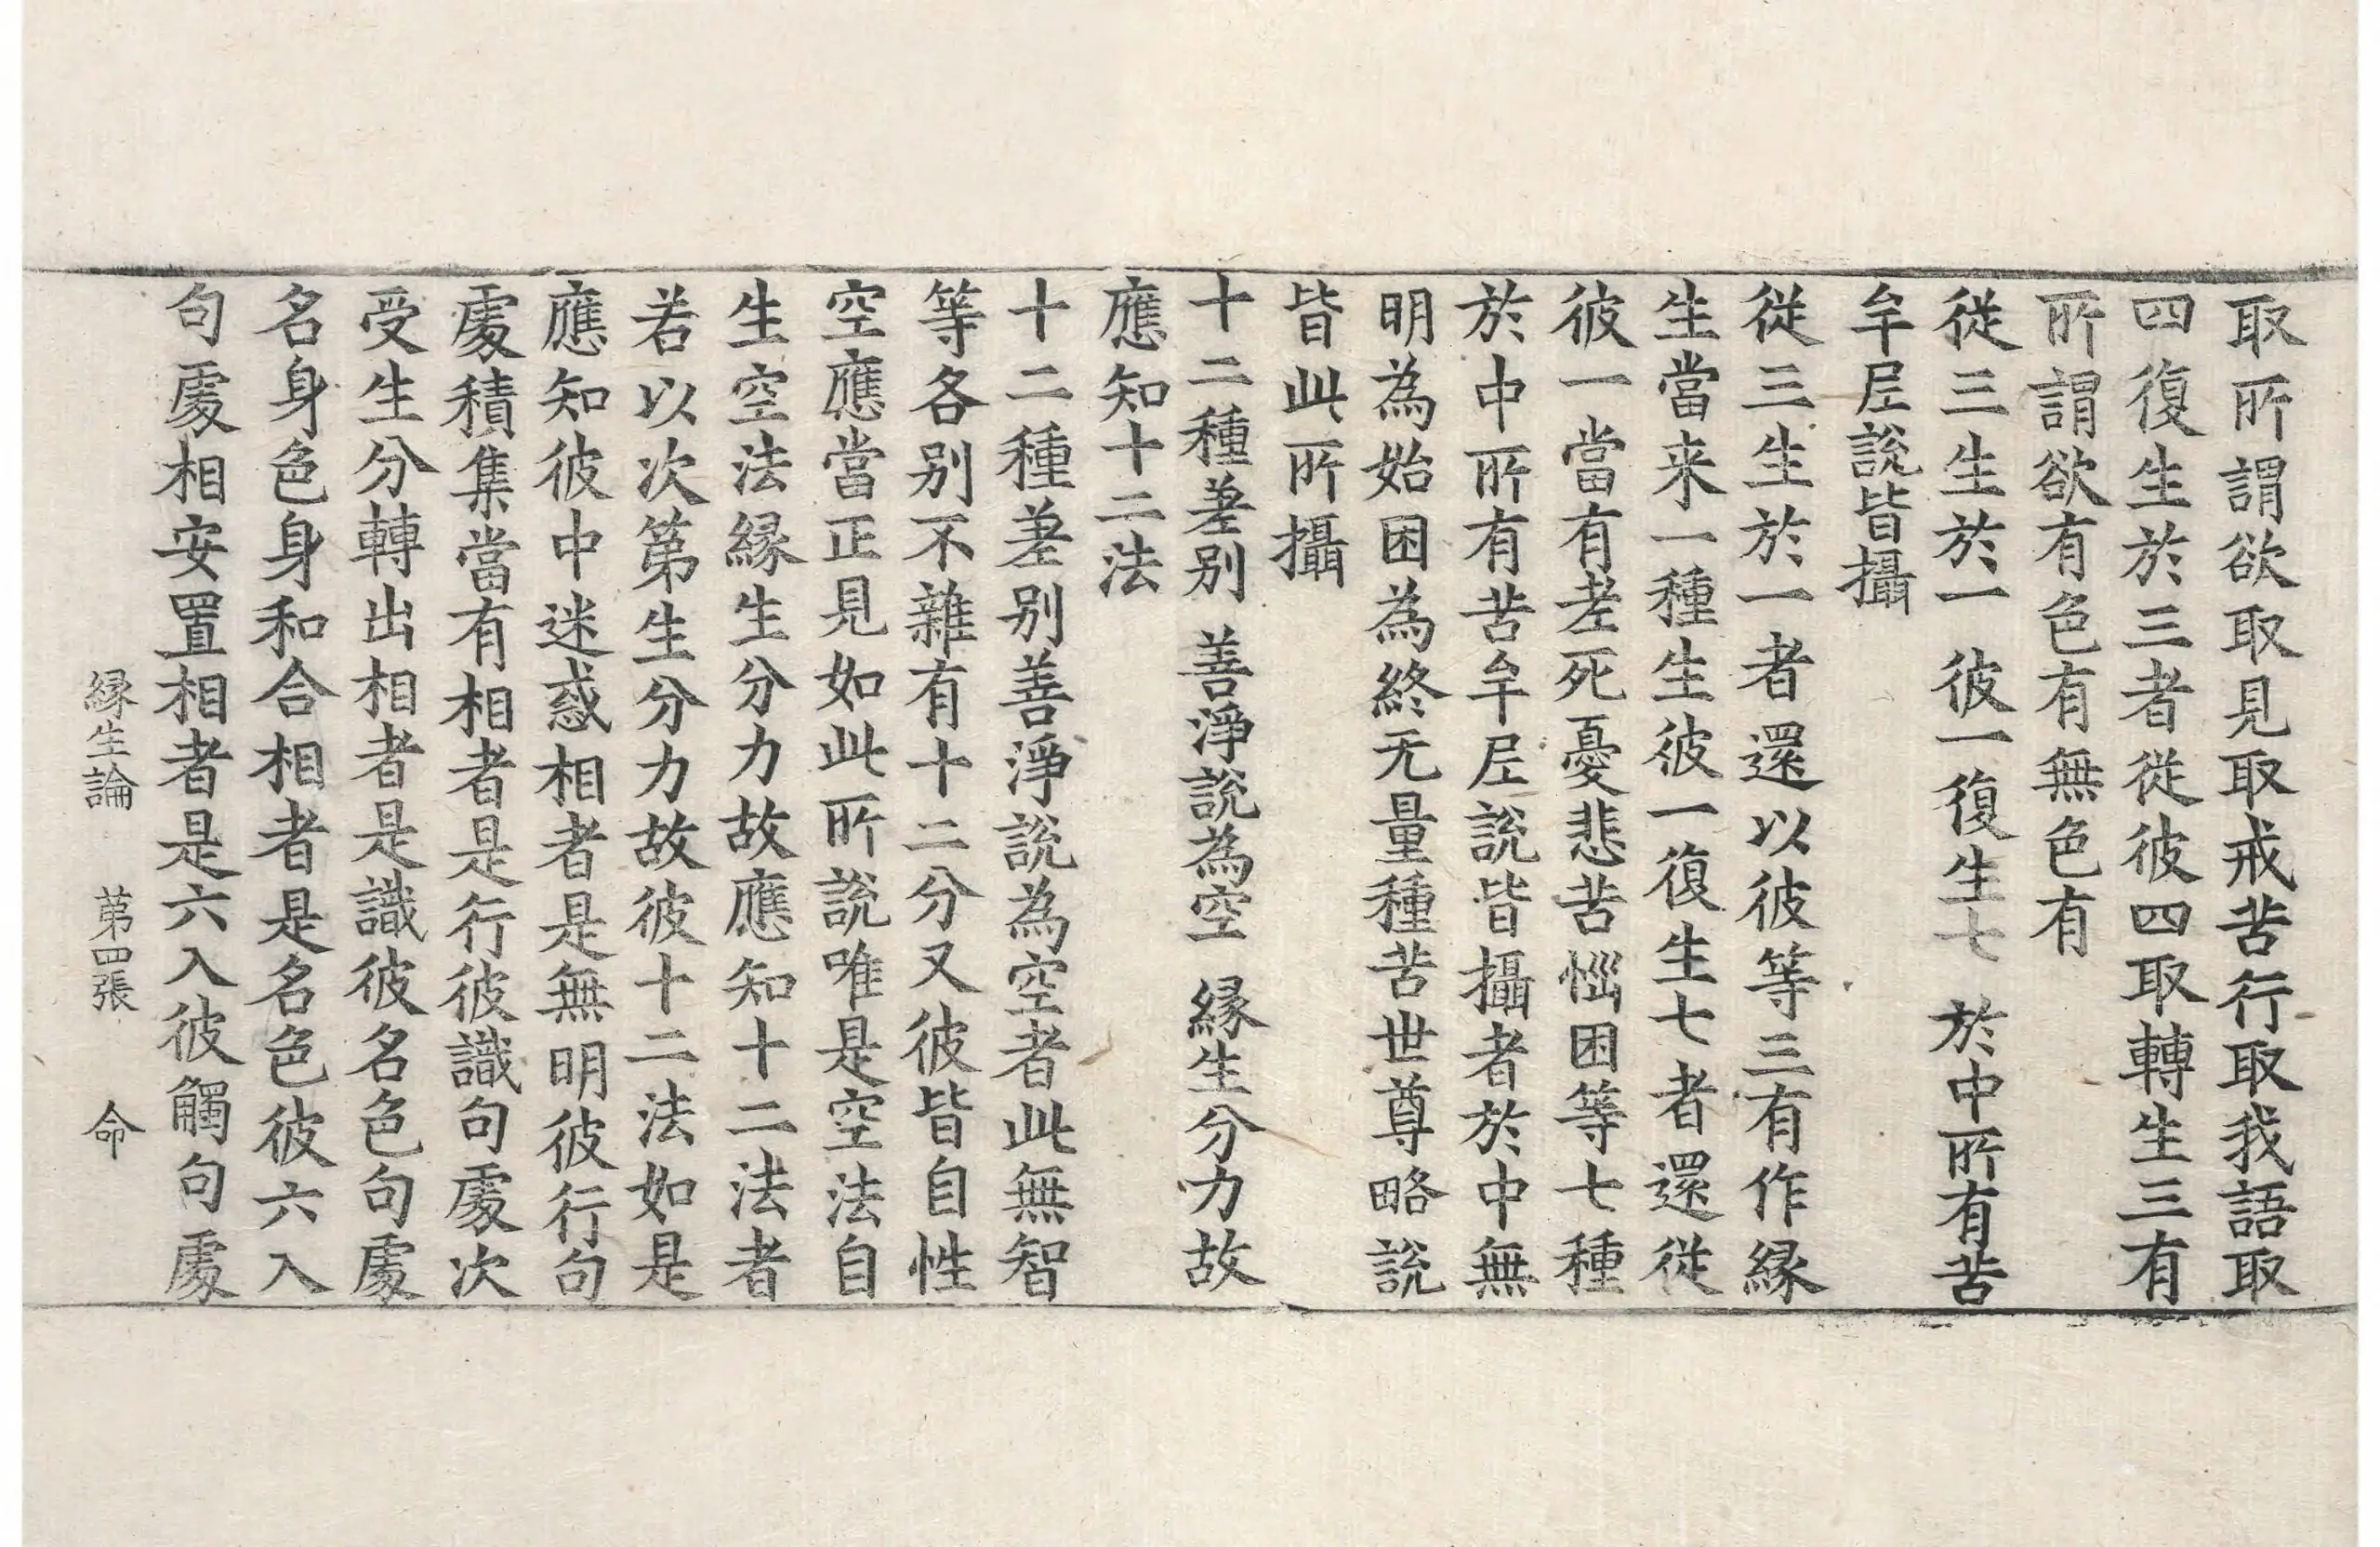 取所謂欲取見取戒苦行取我語取
四復生於三者從彼四取轉生三有
所謂欲有色有無色有
從三生於一　彼一復生七　於中所有苦
牟尼說皆攝
從三生於一者還以彼等三有作緣
生當来一種生彼一復生七者還從
彼一當有老死憂悲苦惱困等七種
於中所有苦牟尼說皆攝者於中無
明為始困為終无量種苦世尊略說
皆此所攝
十二種差別　善淨說為空　緣生分力故
應知十二法
十二種差別善淨說為空者此無智
等各別不雜有十二分又彼皆自性
空應當正見如此所說唯是空法自
生空法緣生分力故應知十二法者
若以次第生分力故彼十二法如是
應知彼中迷惑相者是無明彼行句
處積集當有相者是行彼識句處次
受生分轉出相者是識彼名色句處
名身色身和合相者是名色彼六入
句處相安置相者是六入彼觸句處
緣生論　第四張　命